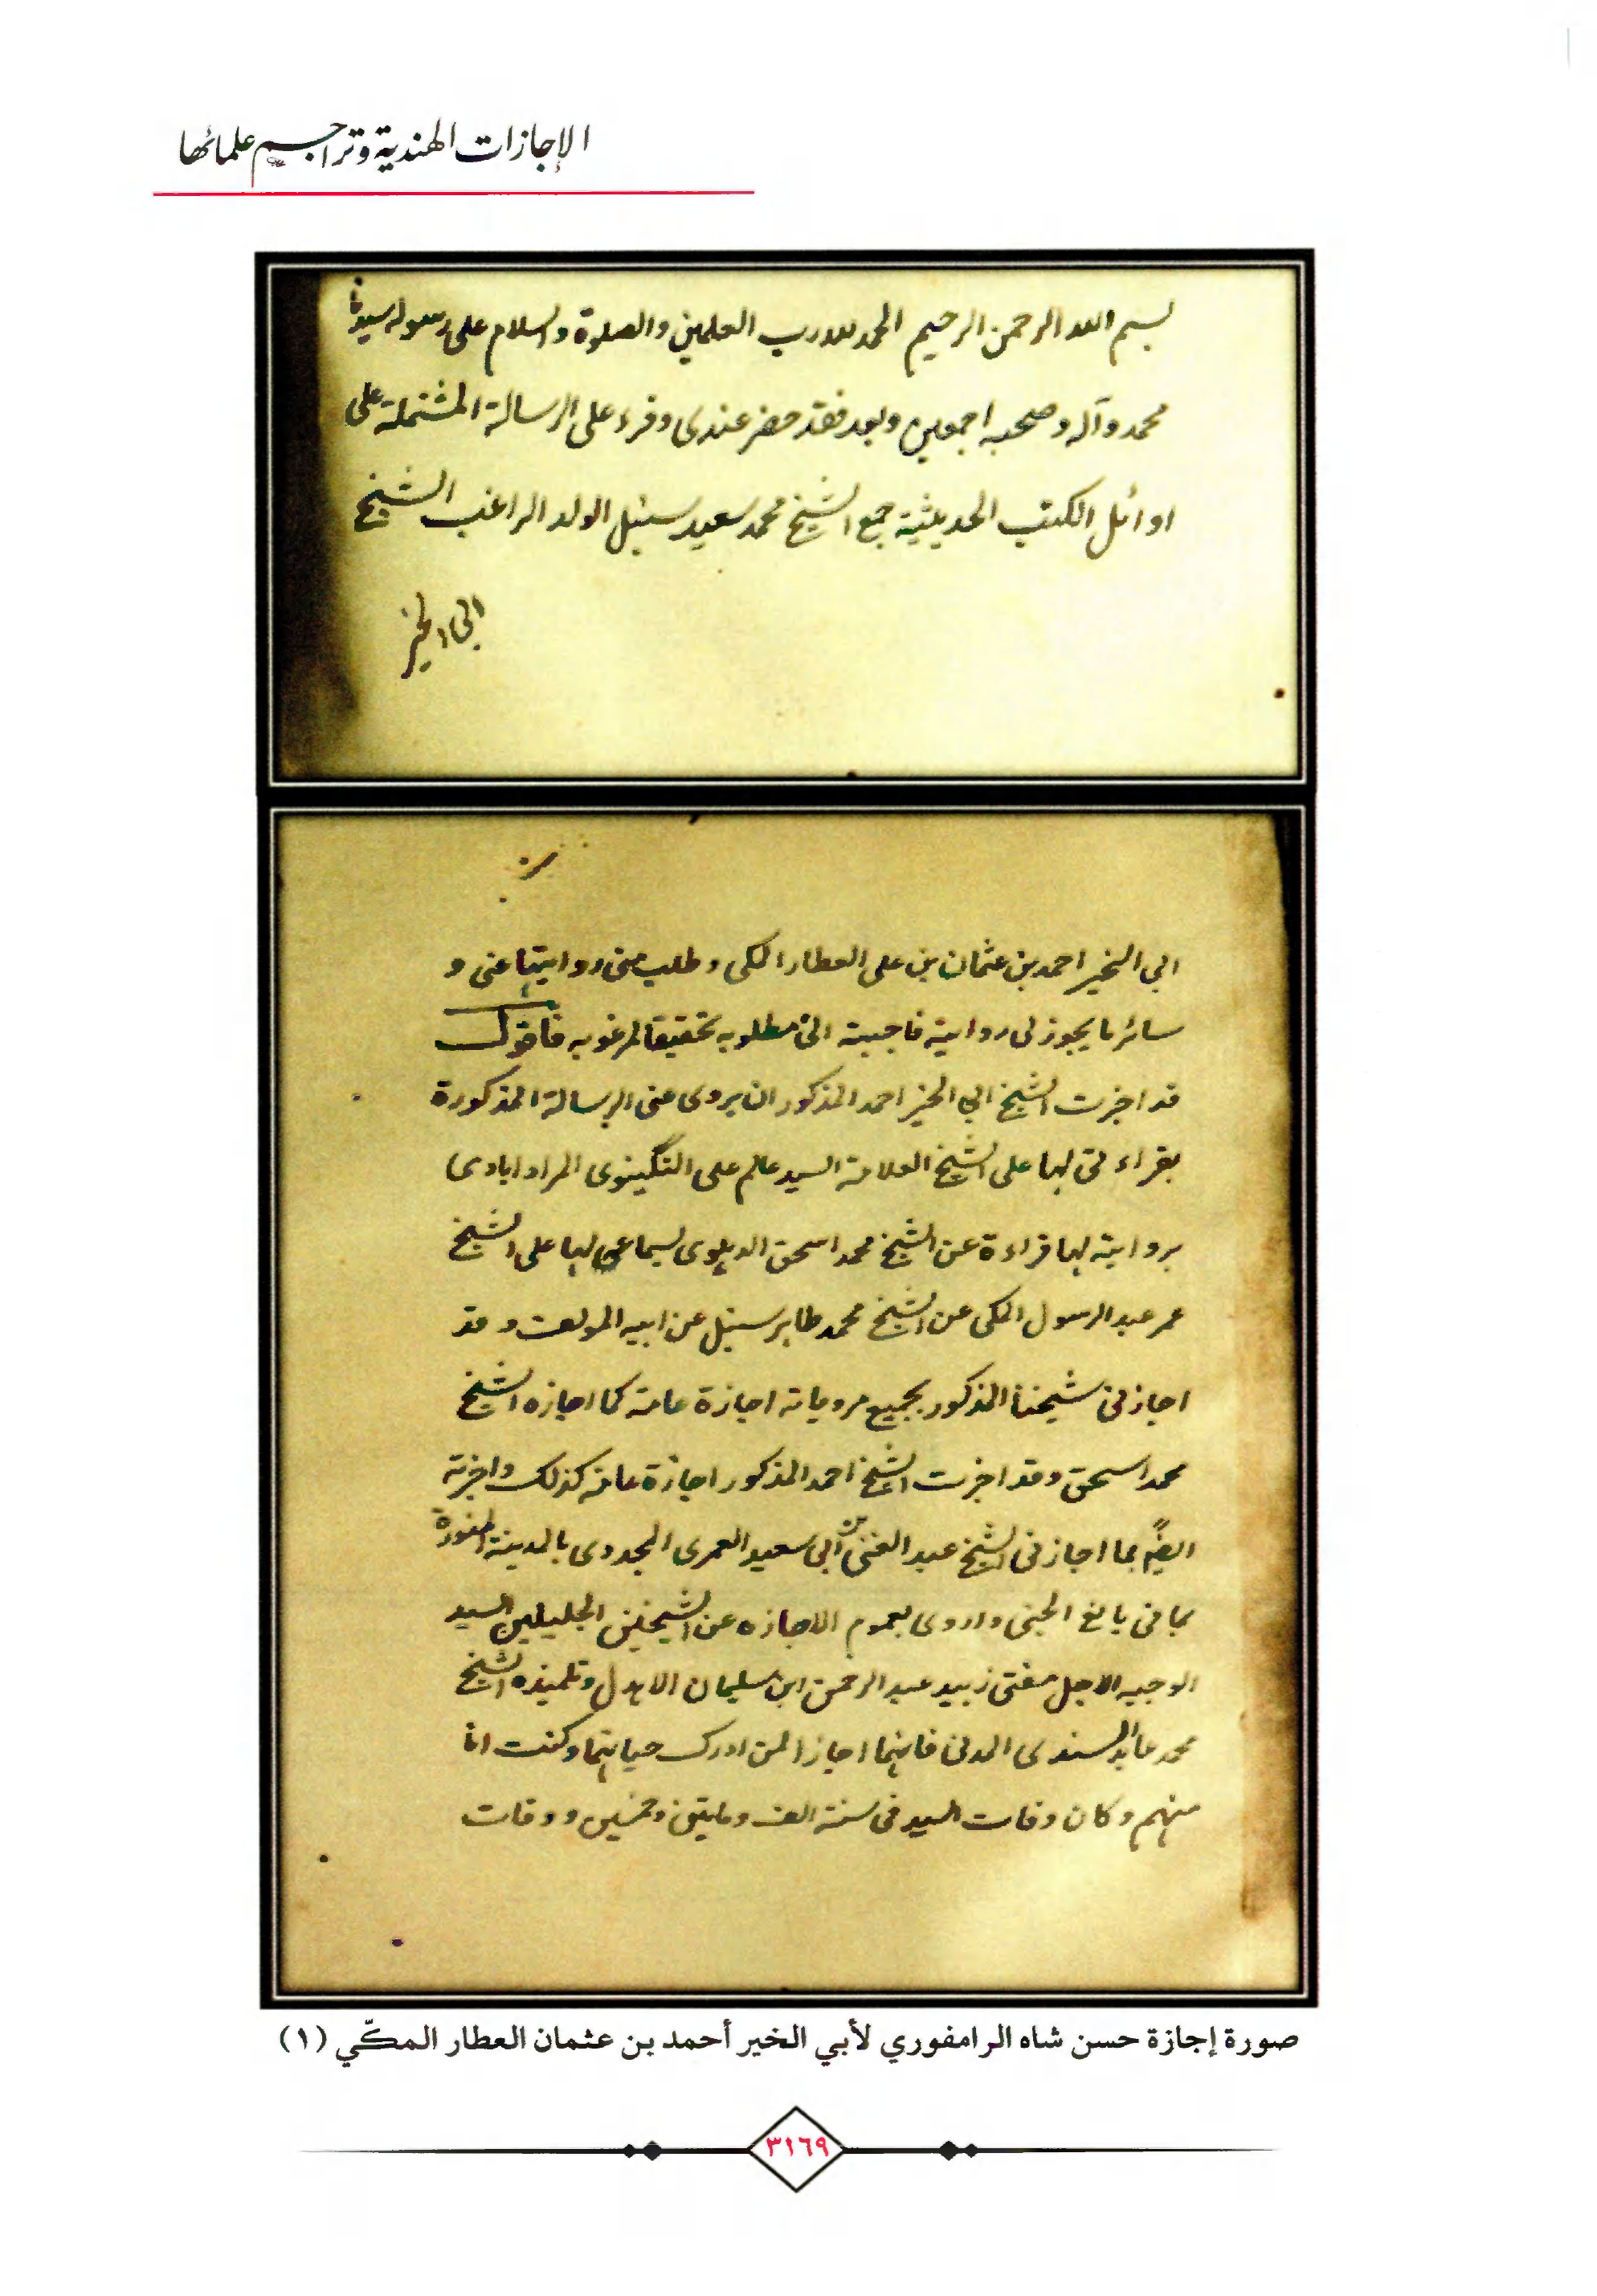 الإجازات الهندية وتراجيم علمائها
بسم الله الرحمن الرحيم الحمد لله رب العلمين والصلوة والسلام على رسوله سيدنا
محمد وآله وصحبه اجمعين وبعد فقد حضر عندى وقرء على الرسالة المشتملة على
اوائل الكتب الحديثية جمع الشيخ محمد سعيد سنبل الولد الراغب الشيخ
ابى الخير
ابى الخير احمد بن عثمان بن على العطار المكى وطلب منى روايتها عنى و
سائر ما يجوز لى روايته فاجبته الى مطلوبه تحقيقا لمرغوبه فاقول
قد اجزت الشيخ ابى الخير احمد المذكور ان يروى عنى الرسالة المذكورة
بقراءتى لها على الشيخ العلامة السيد عالم على النگينوى المرادابادى
بروايته لها قراءة عن الشيخ محمد اسحق الدهلوى بسماعى لها على الشيخ
عمر عبد الرسول المكى عن الشيخ محمد طاهر سنبل عن ابيه المولف وقد
اجازنى شيخنا المذكور بجميع مروياته اجازة عامة كما اجازه الشيخ
محمد اسحق وقد اجزت الشيخ احمد المذكور اجازة عامة كذلك واجزته
ايضا بما اجازنى الشيخ عبد الغنى بن ابى سعيد العمرى المجددى بالمدينة المنورة
بما فى يانع الجنى واروى بعموم الاجازه عن الشيخين الجليلين السيد
الوجيه الاجل مفتى زبيد عبد الرحمن ابن سليمان الاهدل وتلميذه الشيخ
محمد عابد السندى المدنى فانهما اجازا لمن ادرك حياتهما وكنت انا
منهم وكان وفات السيد فى سنة الف ومايتين وخمسين ووفات
صورة إجازة حسن شاه الرامفوري لأبي الخير أحمد بن عثمان العطار المكّي (١)
٣١٦٩